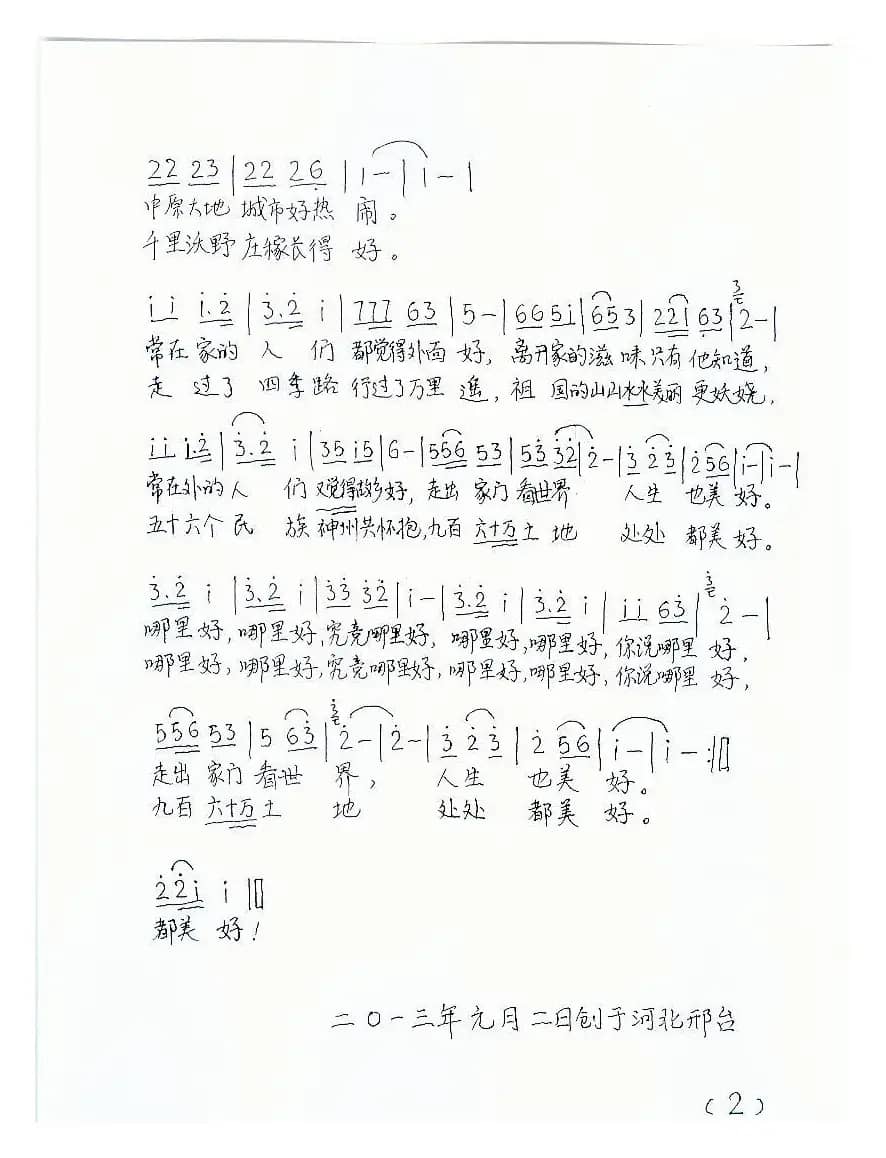 22 23 | 22 26 | i - | i - |
中原大地 城市好热 闹。
千里沃野 庄稼长得 好。
i i i.2 | 3.2 i | 777 63 | 5 - | 665i | 653 | 22i 63 | 3 2 - |
常在 家的 人 们 都觉得外面 好，离开家的滋 味只有 他知道，
走 过了 四季路 行过了万里 遥，祖 国的山山水水美丽 更妖娆，
i i i.2 | 3.2 i | 35 i5 | 6 - | 556 53 | 53 32 | 2 - | 3 23 | 256 | i - | i - |
常在外的 人 们 又觉得故乡好，走出 家门 看世界 人生 也美 好。
五十六个 民 族 神州共怀抱，九百 六十万 土 地 处处 都美 好。
3.2 i | 3.2 i | 33 32 | i - | 3.2 i | 3.2 i | i i 63 | 3 2 - |
哪里好，哪里好，究竟哪里好，哪里好，哪里好，你说哪里 好，
哪里好，哪里好，究竟哪里好，哪里好，哪里好，你说哪里 好，
556 53 | 5 63 | 3 2 - | 2 - | 3 23 | 2 56 | i - | i - :||
走出 家门 看世 界， 人生 也美 好。
九百 六十万 土 地 处处 都美 好。
22i i ||
都美 好！
二〇一三年元月二日创于河北邢台
（2）